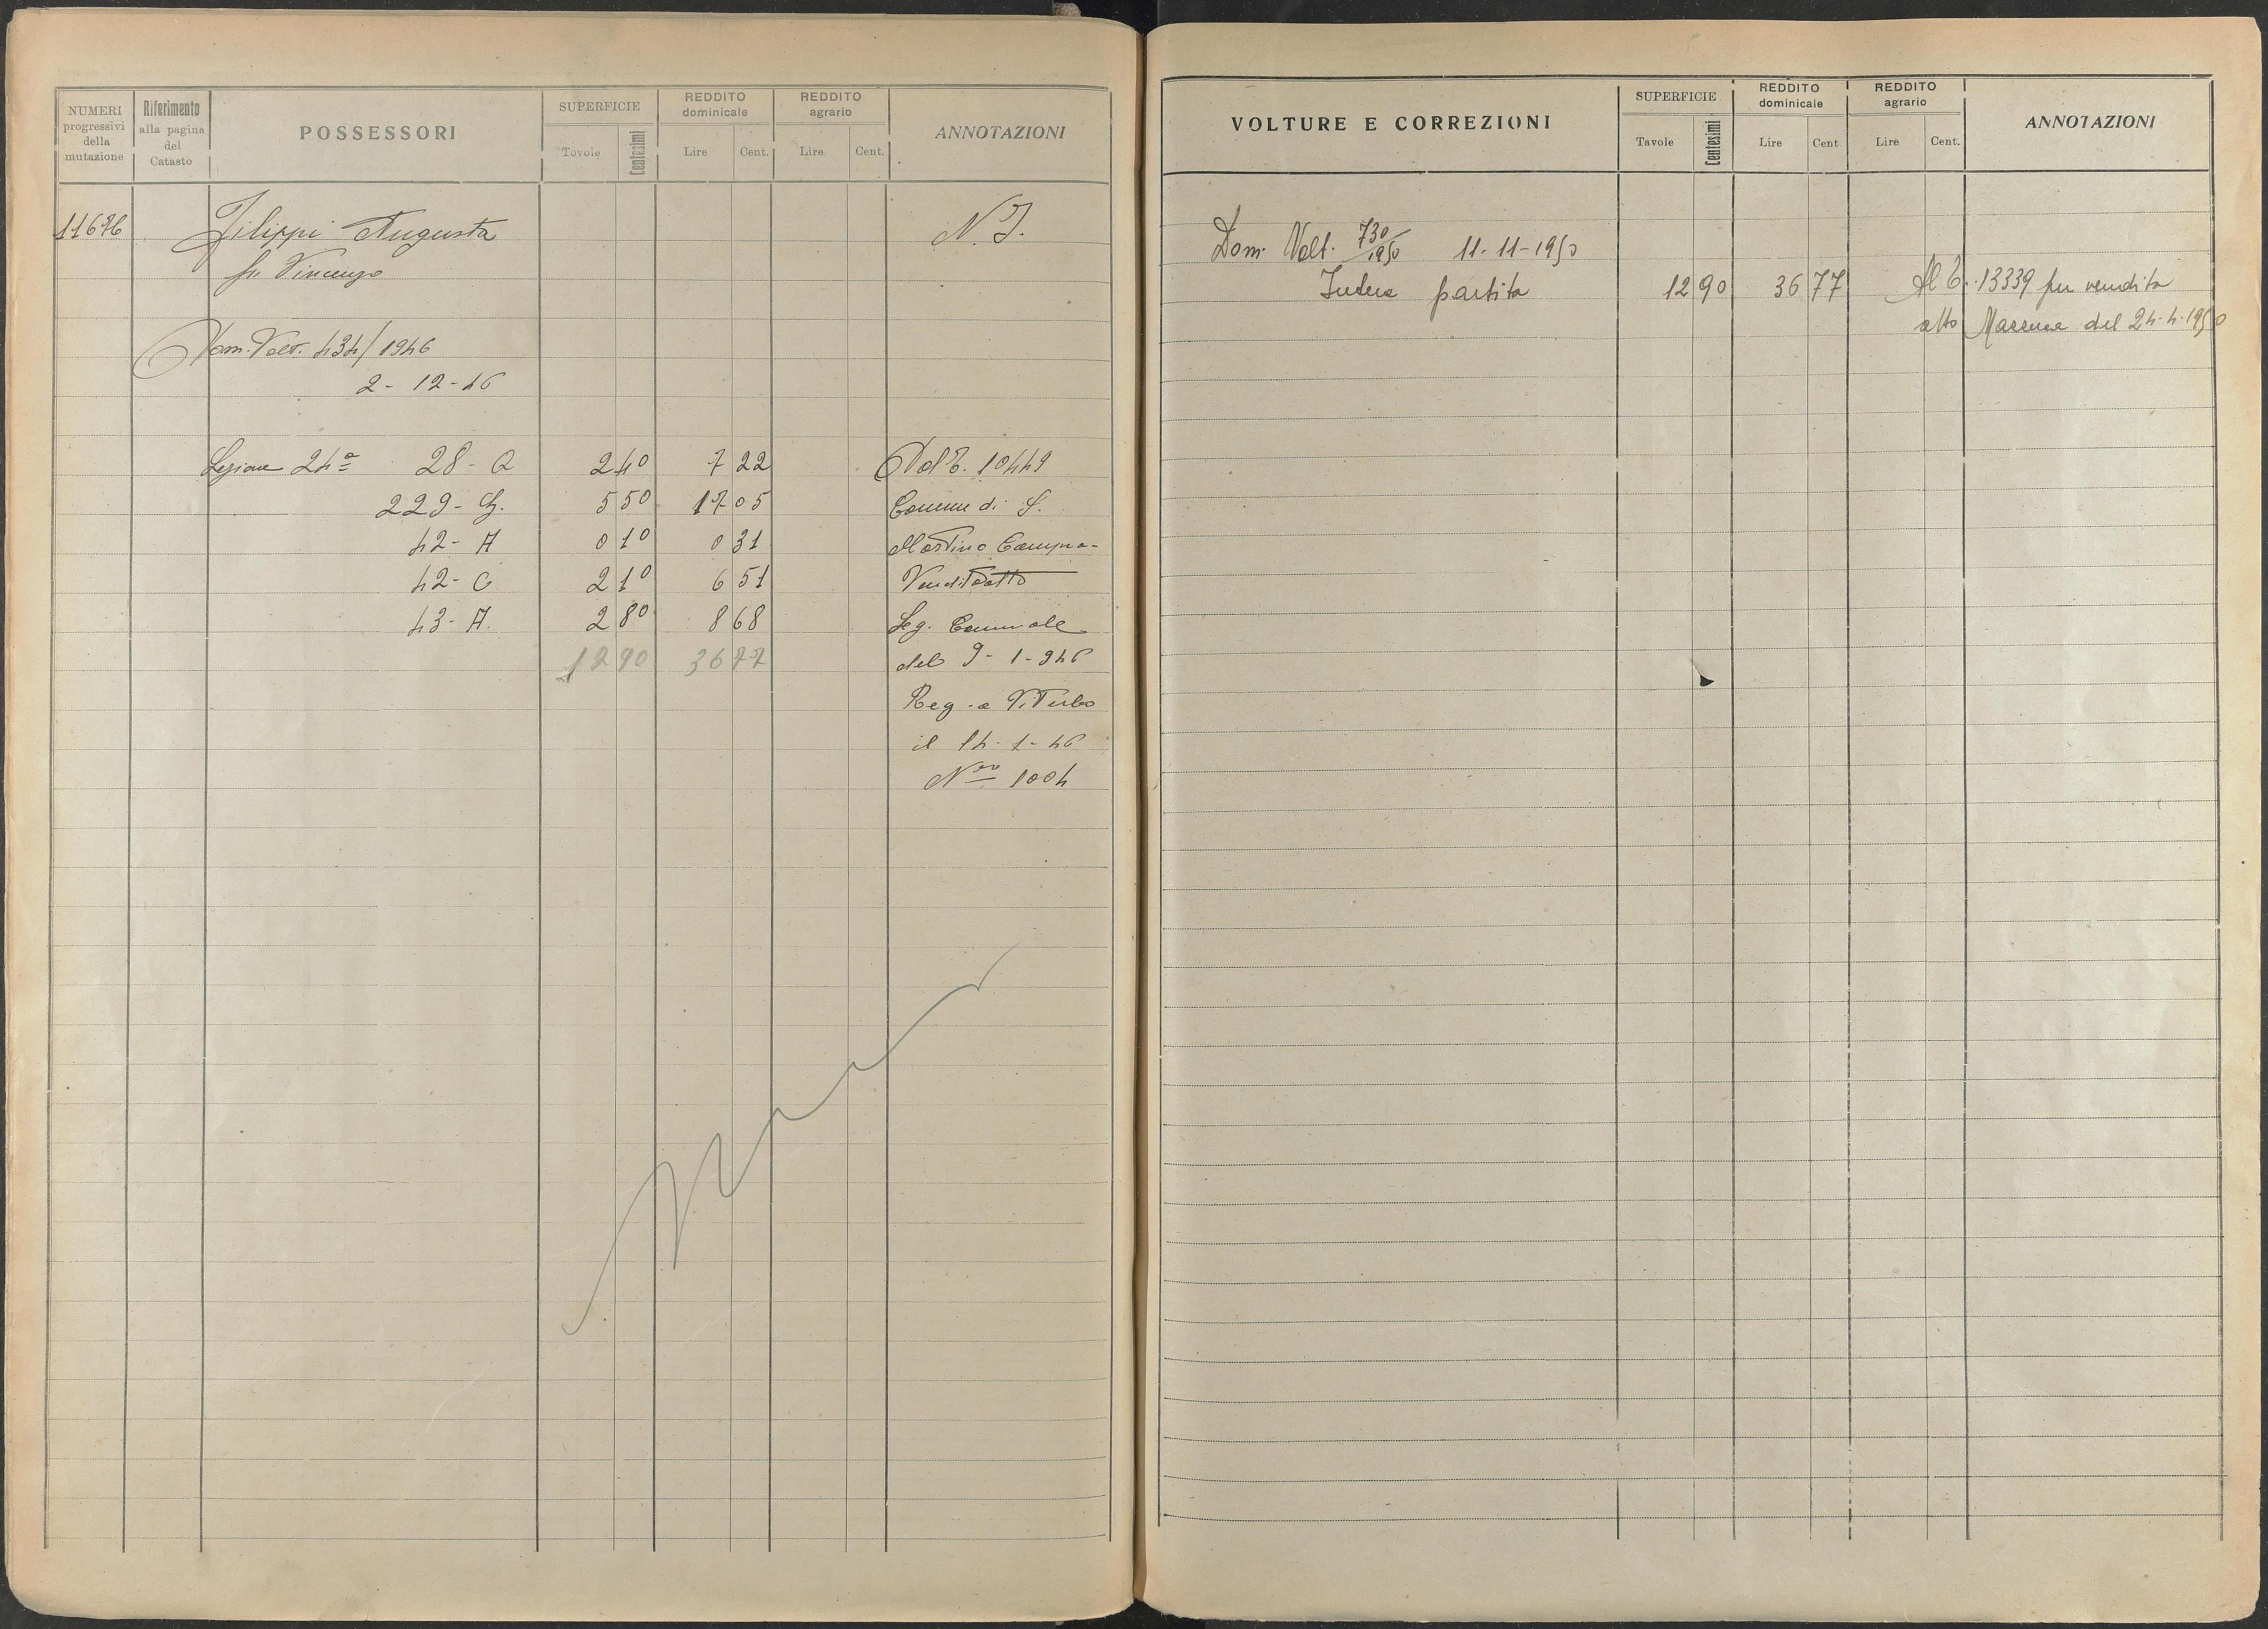 NUMERI progressivi della mutazione
Riferimento alla pagina del Catasto
POSSESSORI
SUPERFICIE
Tavole Centesimi
REDDITO dominicale
Lire Cent.
REDDITO agrario
Lire Cent.
ANNOTAZIONI
11676 Filippi Augusta N. I.
fu Vincenzo
Dom. Volt. 434/1946
2-12-46
Sezione 24ª 28-Q 2 40 7 22 Dal T. 10449
229- 5 50 17 05 Comune di S.
42-A 0 10 0 31 Martino Campo-
42-C 2 10 6 51 Vendita atto
43-A 2 80 8 68 Seg. Comunale
12 90 36 77 del 9-1-946
Reg. a Viterbo
il 14-1-46
Nro 1004
VOLTURE E CORREZIONI
SUPERFICIE
Tavole Centesimi
REDDITO dominicale
Lire Cent
REDDITO agrario
Lire Cent.
ANNOTAZIONI
Dom. Volt. 730/1950 11-11-1950
Intera partita 12 90 36 77 Al T. 13339 per vendita
atto del 24-4-1950